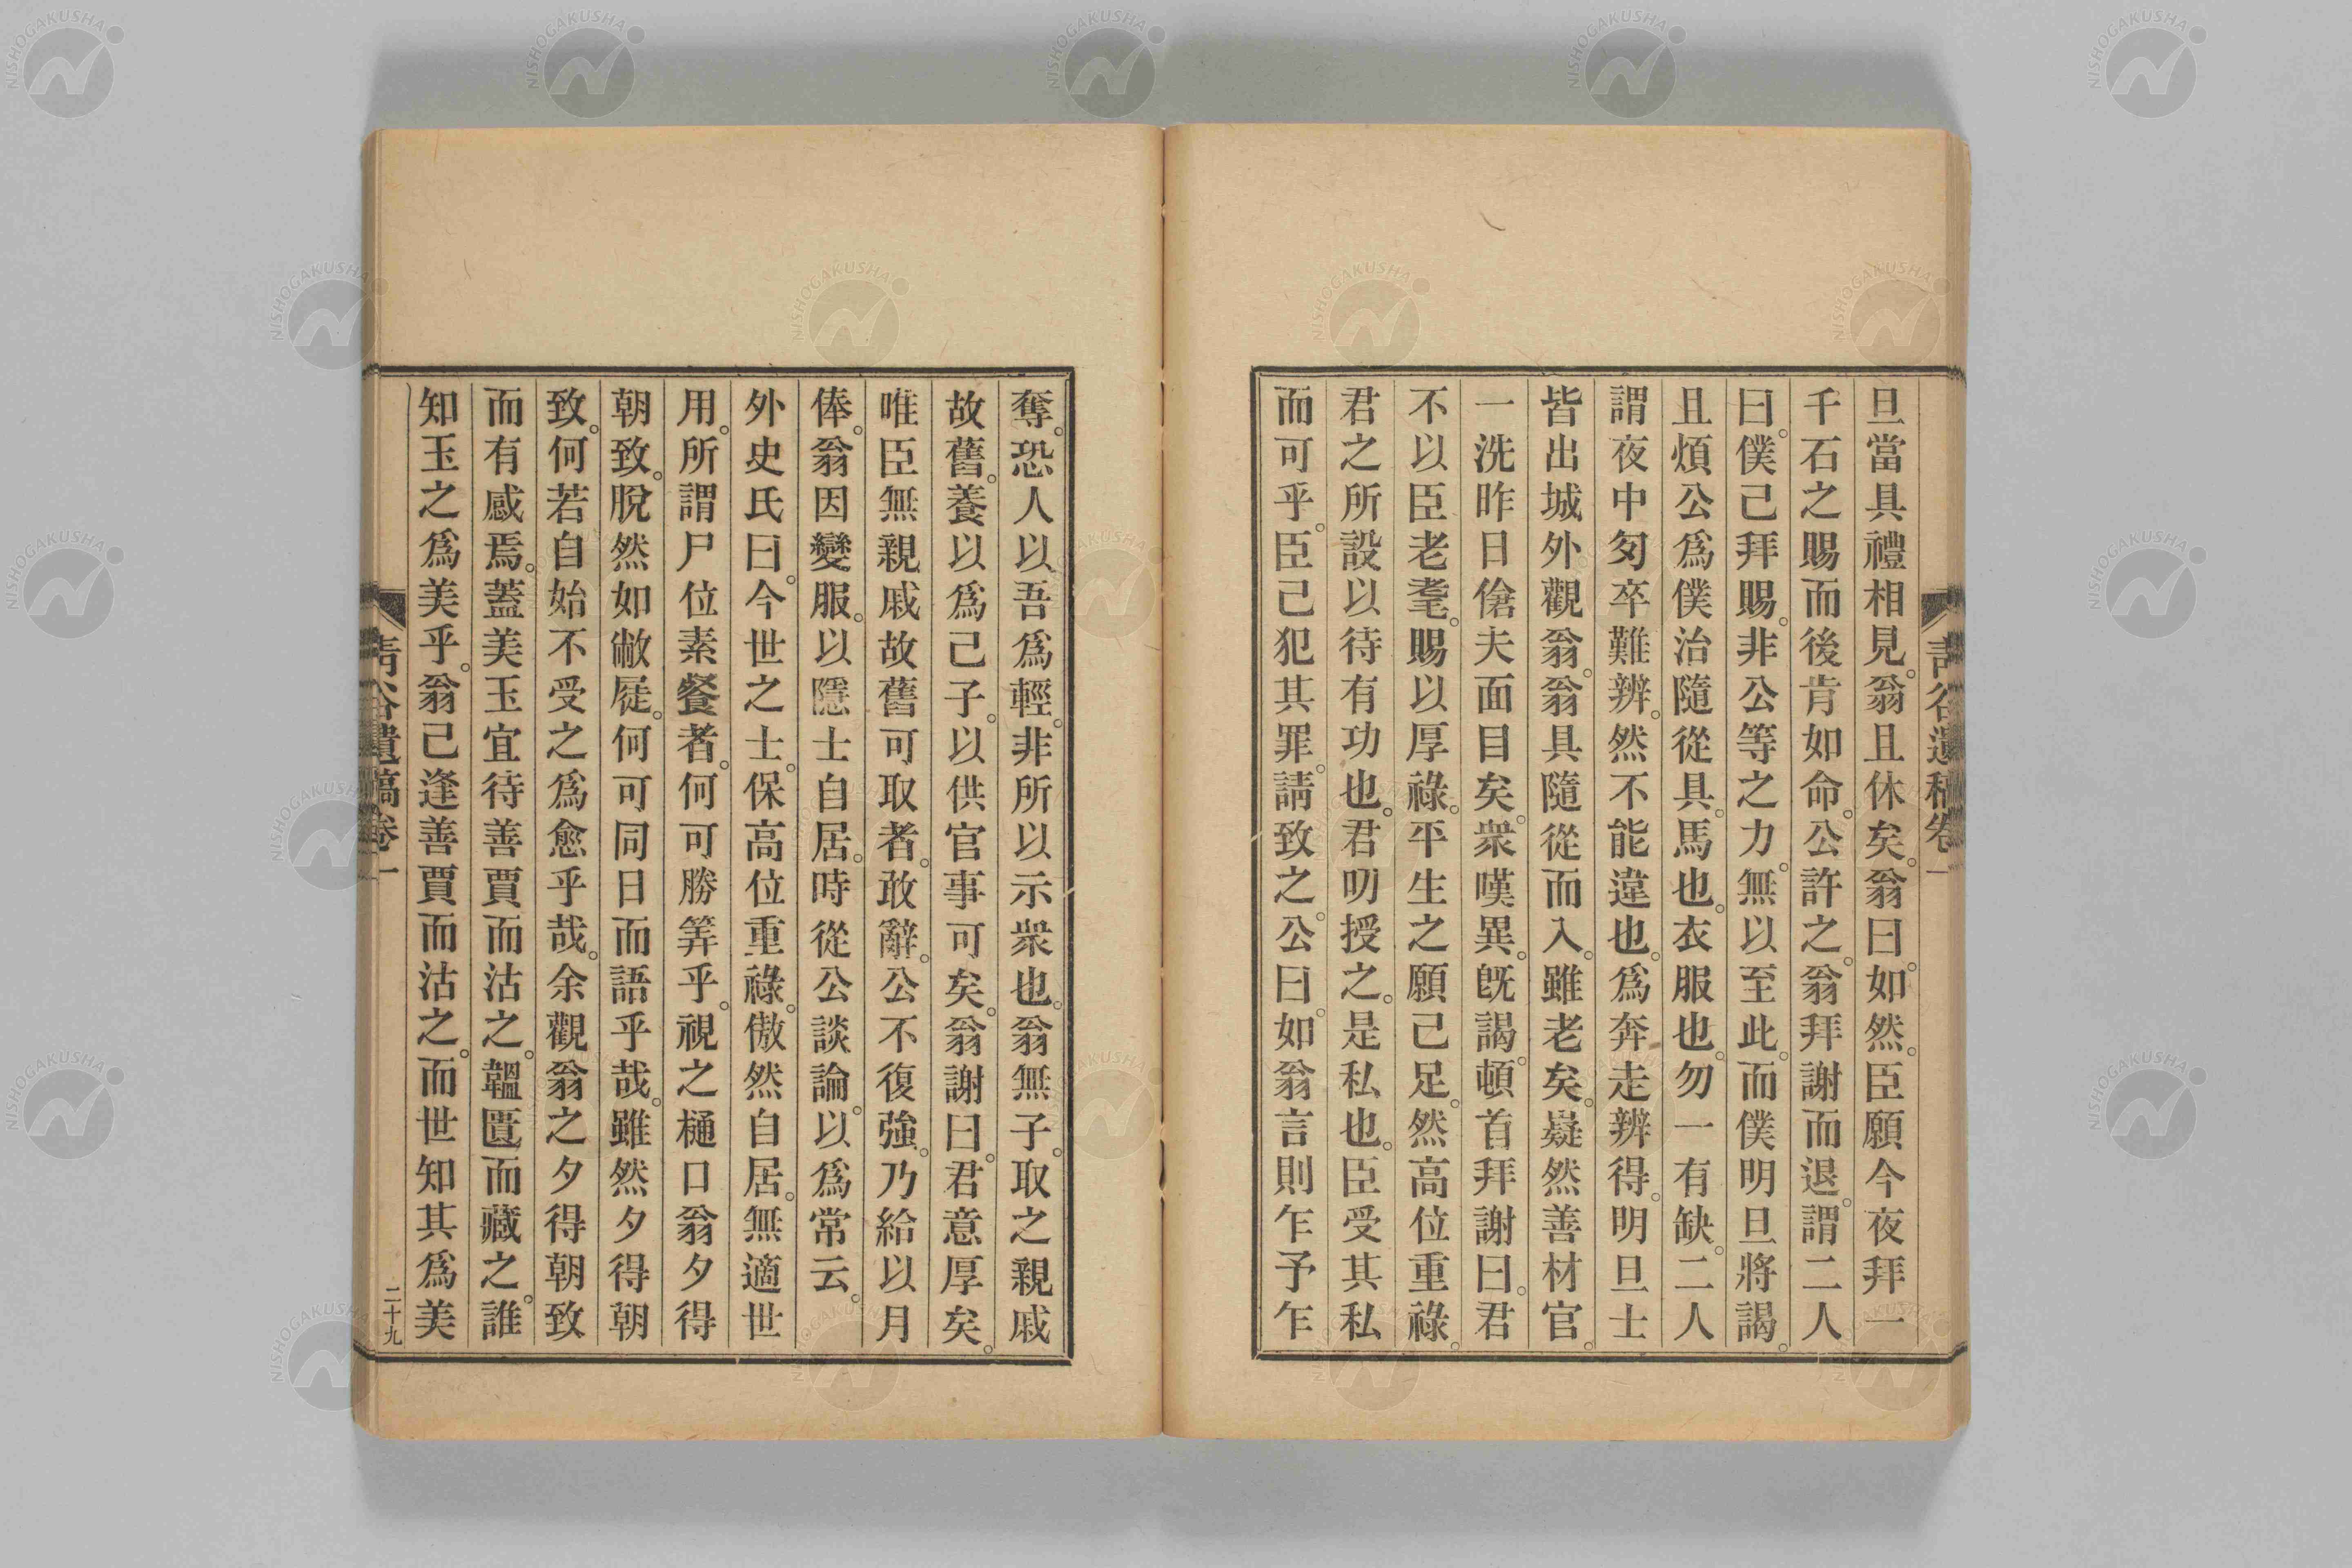 旦當具禮相見。翁且休矣。翁曰。如然。臣願今夜拜一
千石之賜而後肯如命。公許之。翁拜謝而退。謂二人
曰。僕已拜賜。非公等之力。無以至此。而僕明旦將謁。
且煩公爲僕治隨從具。馬也。衣服也。勿一有缺。二人
謂夜中匆卒難辨。然不能違也。爲奔走辨得。明旦士
皆出城外觀翁。翁具隨從而入。雖老矣。嶷然善材官。
一洗昨日傖夫面目矣。衆嘆異。旣謁。頓首拜謝曰。君
不以臣老耄。賜以厚祿。平生之願已足。然高位重祿。
君之所設以待有功也。君叨授之。是私也。臣受其私
而可乎。臣已犯其罪。請致之。公曰。如翁言則乍予乍
奪。恐人以吾爲輕。非所以示衆也。翁無子。取之親戚
故舊。養以爲己子。以供官事可矣。翁謝曰。君意厚矣。
唯臣無親戚故舊可取者。敢辭。公不復強。乃給以月
俸。翁因變服。以隱士自居。時從公談論。以爲常云。
外史氏曰。今世之士。保高位重祿。傲然自居。無適世
用。所謂尸位素餐者。何可勝筭乎。視之樋口翁夕得
朝致。脫然如敝屣。何可同日而語乎哉。雖然夕得朝
致。何若自始不受之爲愈乎哉。余觀翁之夕得朝致
而有感焉。蓋美玉宜待善賈而沽之。韞匵而藏之。誰
知玉之爲美乎。翁已逢善賈而沽之。而世知其爲美
青谷遺稿卷一
二十九
NISHOGAKUSHA